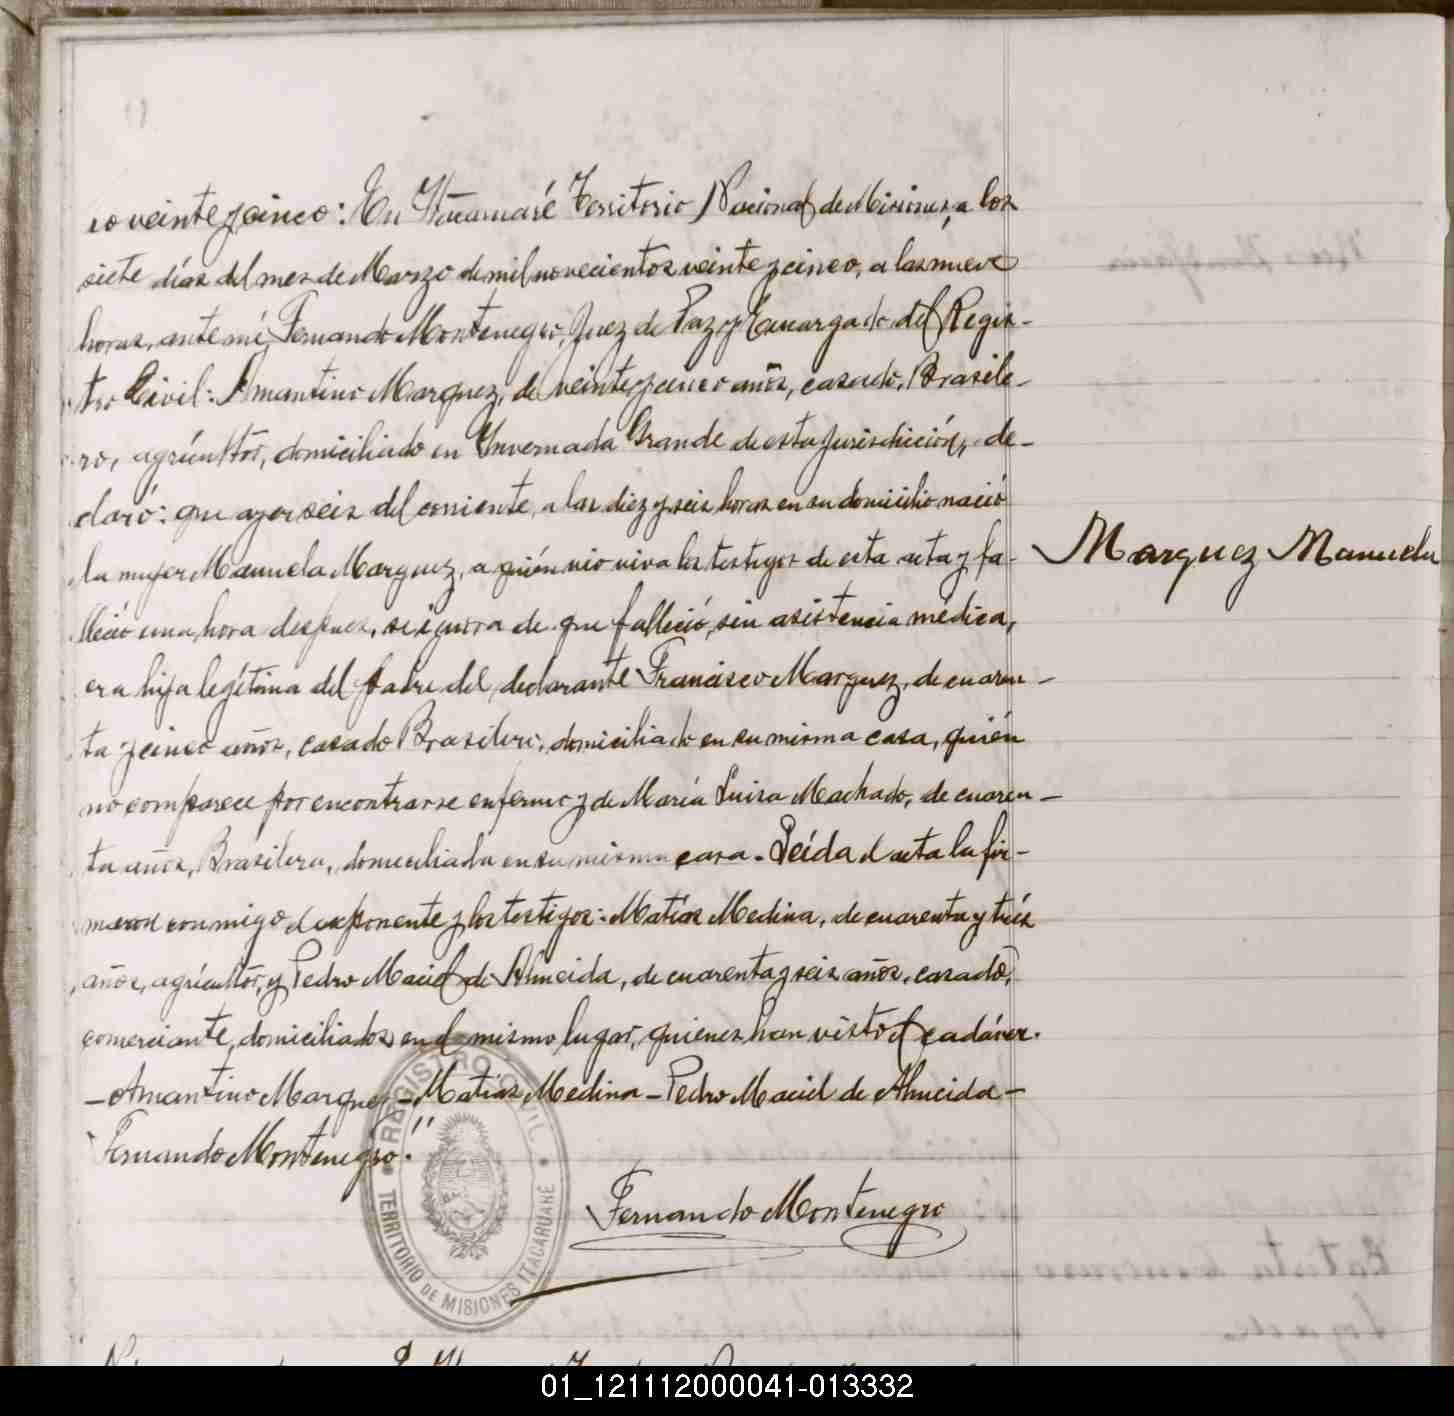 ro veinte y cinco: En Itacaruaré Territorio Nacional de Misiones, a los
siete días del mes de Marzo de mil novecientos veinte y cinco, a las nueve
horas, ante mí, Fernando Montenegro, Juez de Paz y Encargado del Regis-
tro Civil: Amantino Marquez, de veinte y cinco años, casado, Brasile-
ro, agricultor, domiciliado en Invernada Grande de esta jurisdicción, de-
claró: que ayer seis del corriente, a las diez y seis horas en su domicilio nació
la mujer Manuela Marquez, a quién vio viva los testigos de esta acta y fa-
lleció una hora despues, se ignora de que falleció, sin asistencia médica,
era hija legítima del padre del declarante Francisco Marquez, de cuaren-
ta y cinco años, casado Brasilero, domiciliado en su misma casa, quién
no comparece por encontrarse enfermo y de María Luisa Machado, de cuaren-
ta años, Brasilera, domiciliada en su misma casa. Leída el acta la fir-
maron conmigo el exponente y los testigos: Matías Medina, de cuarenta y trés
años, agricultor, y Pedro Maciel de Almeida, de cuarenta y seis años, casado,
comerciante, domiciliados en el mismo lugar, quienes han visto el cadáver.
- Amantino Marquez - Matías Medina - Pedro Maciel de Almeida -
Fernando Montenegro."
Marquez Manuela
Fernando Montenegro
REGISTRO CIVIL
TERRITORIO DE MISIONES ITACARUARÉ
01_121112000041-013332